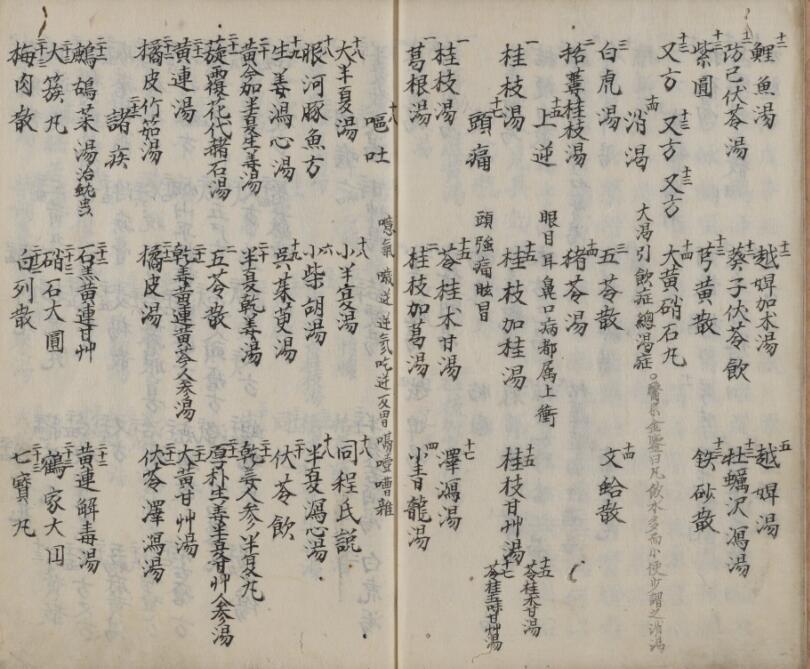 十三 鯉魚湯 十三 越婢加朮湯 五 越婢湯
十三 防己茯苓湯 十三 葵子茯苓飲 十三 牡蠣沢瀉湯
十三 紫圓 十三 芎黄散 十三 鉄砂散
十三 又方 十三 又方 十三 又方 十四 大黄硝石丸
十四 消渇 大渇引飲症總渇症
三 白虎湯 三 五苓散 十四 文蛤散
二 括蔞桂枝湯 十四 猪苓湯
十五 上逆 眼目耳鼻口病都属上衝
一 桂枝湯 十五 桂枝加桂湯 十五 桂枝甘艸湯 十五 苓桂朮甘湯
十七 苓桂五味甘艸湯
十七 頭痛 頭強痛眩冒
一 桂枝湯 十五 苓桂朮甘湯 十七 澤瀉湯
一 葛根湯 二 桂枝加葛湯 四 小青龍湯
十八 嘔吐 噫氣 噦逆 逆氣吃逆反胃 噎嘈雜
十八 大半夏湯 十八 小半夏湯 十八 同程氏説
十八 眼河豚魚方 六 小柴胡湯 十八 半夏瀉心湯
十九 生姜瀉心湯 十九 呉茱萸湯 二十 茯苓飲
二十 黄今加半夏生姜湯 二十 半夏乾姜湯 二十 乾姜人参半夏丸
二十 旋覆花代赭石湯 二 五苓散 二十 厚朴生姜半夏甘艸人参湯
二十 黄連湯 二十 乾姜黄連黄芩人参湯 二十 大黄甘艸湯
二十 橘皮竹筎湯 二十 橘皮湯 二十 茯苓澤瀉湯
二十二 諸疾
二十二 鷓鴣菜湯治蚘虫 二十二 石羔黄連甘艸 二十二 黄連解毒湯
二十三 大簇丸 二十三 硝石大圓 二十三 鶴家大円
二十三 梅肉散 二十三 白列散 二十三 七寳丸